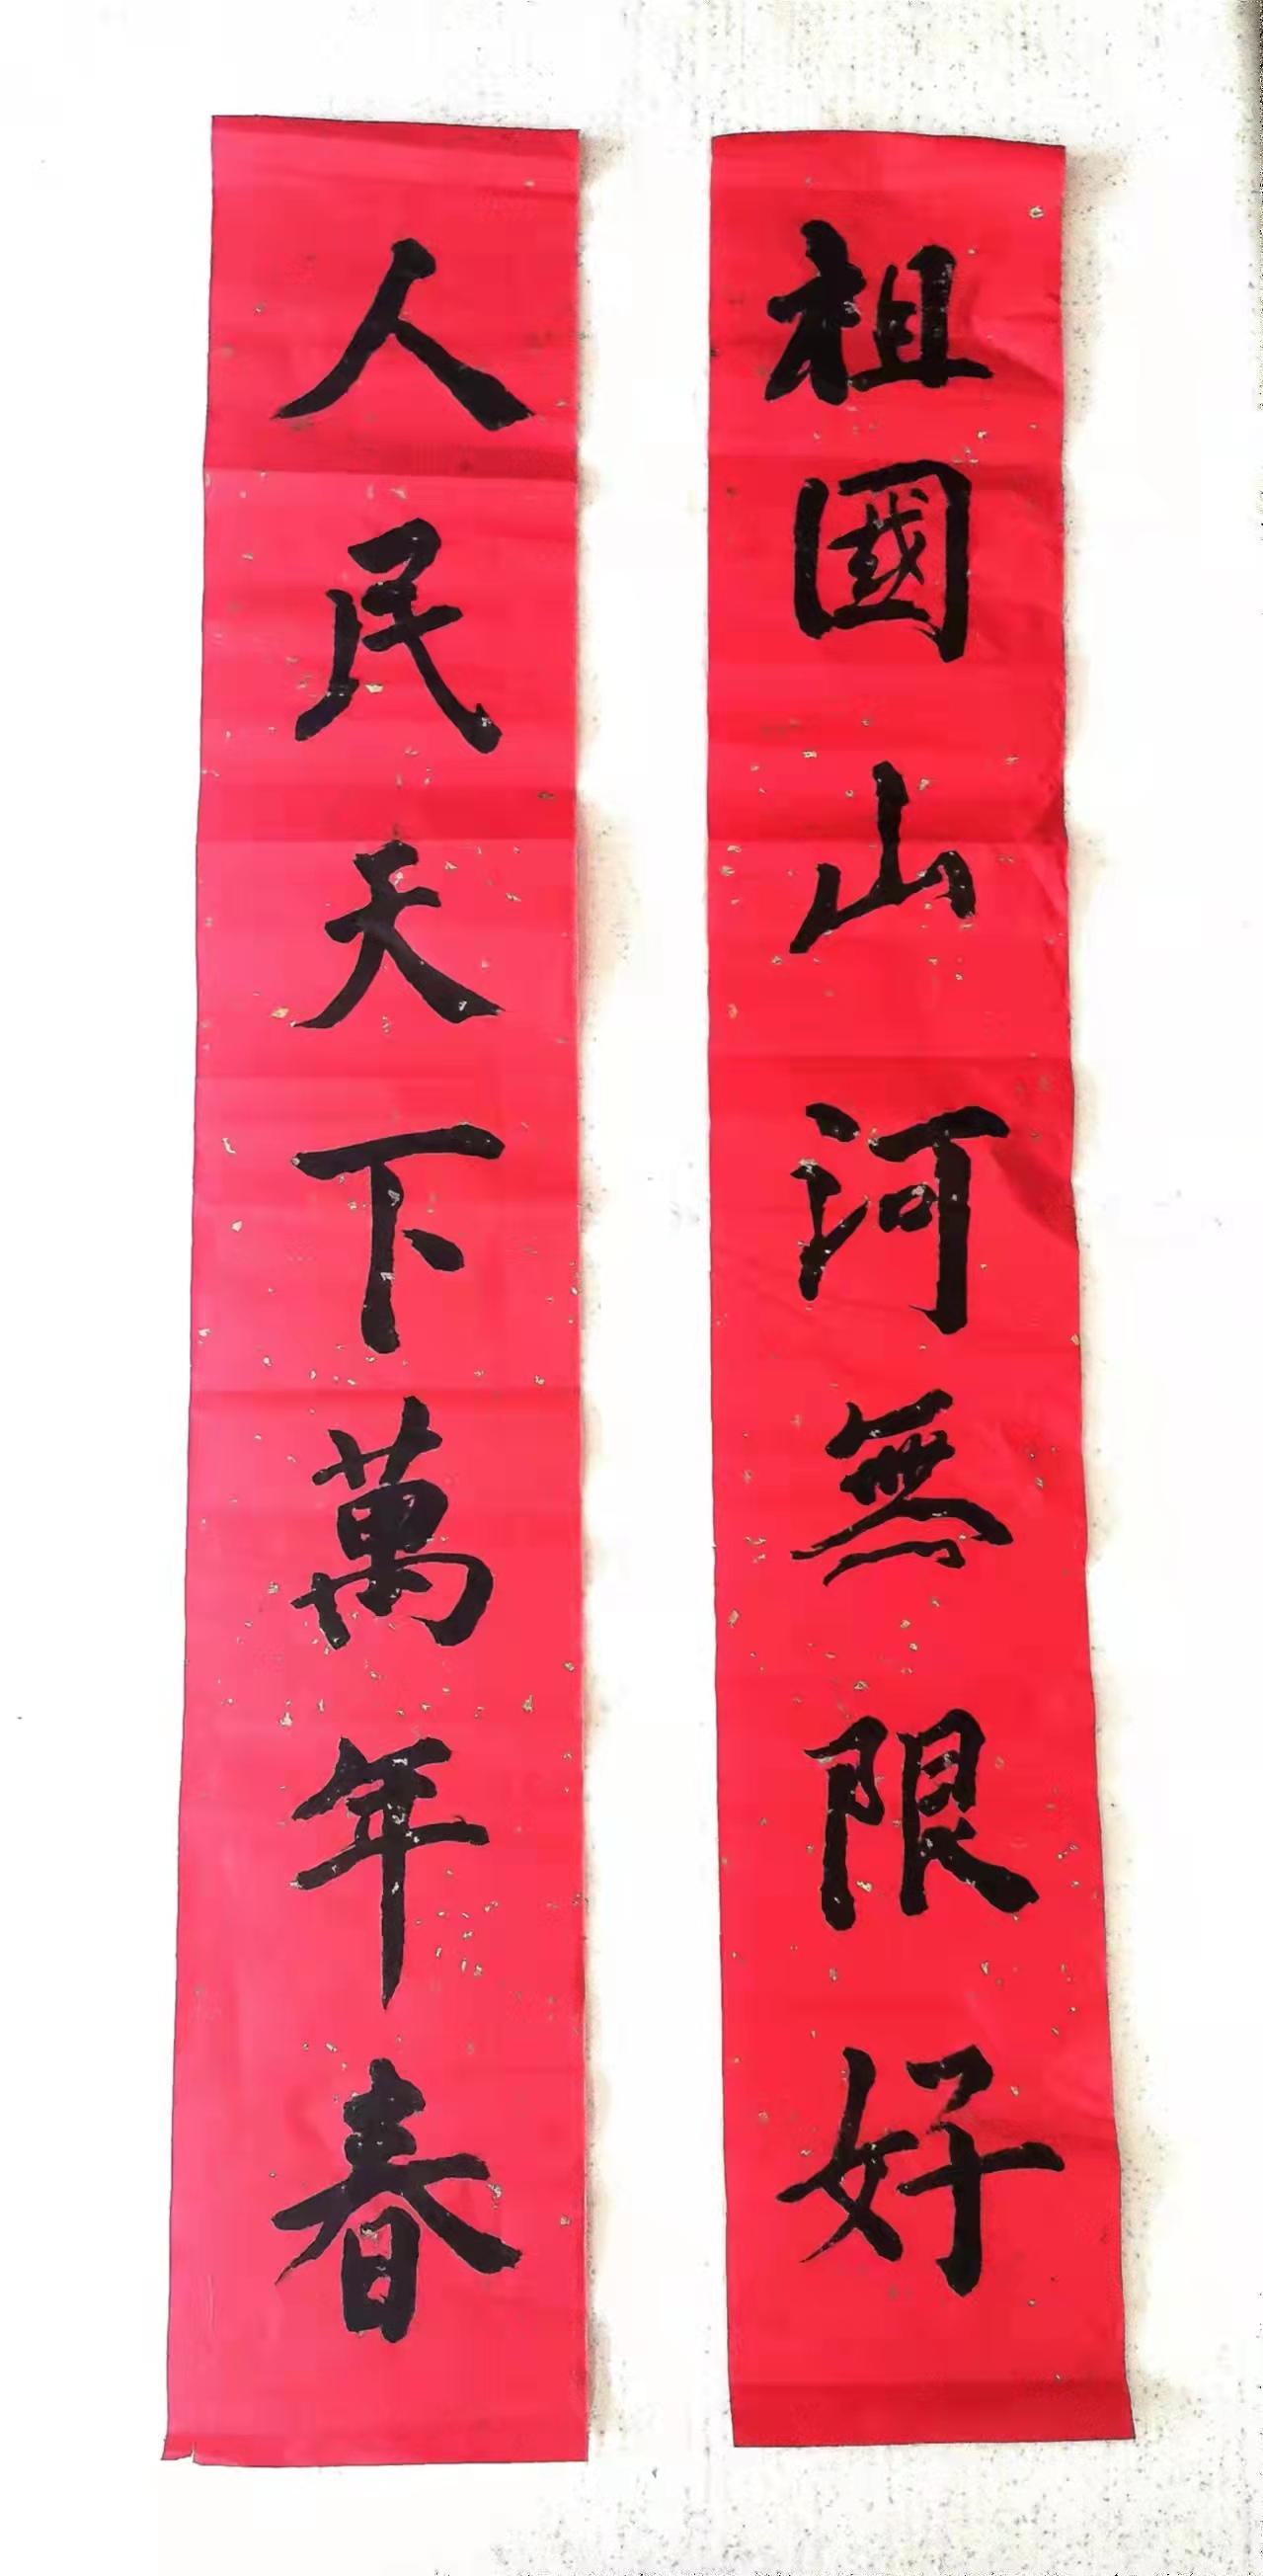 祖國山河無限好
人民天下萬年春